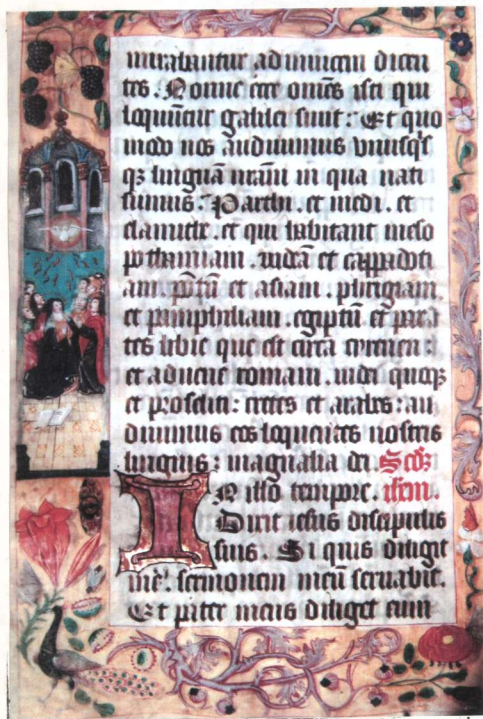 mirabantur ad inuicem dicen
tes. Nonne ecce om̄es isti qui
loquūtur galilei sunt: Et quo
modo nos audiuimus vnusq's
qz linguā nrām in qua nati
sumus: Parthi. et medi. et
elamite. et qui habitant meso
pothamiam. iudeā et cappadoti
am pōtū et asiam. phrigiam.
et pamphiliam. egiptū et par
tes libie que est circa cyrenen:
et aduene romani. iudei quoqz
et proseliti: cretes et arabes: au
diuimus eos loquētes nostris
linguis: magnalia dei. Scdz
IN illo tempore. ihem.
Dixit iesus discipulis
suis. Si quis diligit
me: sermonem meū seruabit.
Et pater meus diliget eum